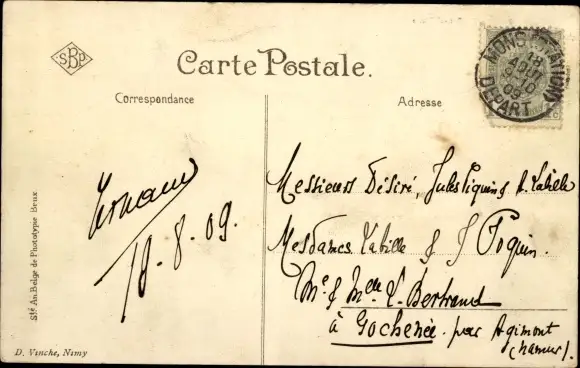 SBP
Carte Postale.
Correspondance
Adresse
MONS (STATION)
18
AOUT
09
DEPART
Fernand
18-8-09.
Messieurs Désiré, Jules Piquin & Labille
Mesdames Labille & J Poquin.
Mr & Melle V. Bertrand
à Gochenée par Agimont
(Namur).
Sté An. Belge de Phototypie Brux
D. Vinche, Nimy